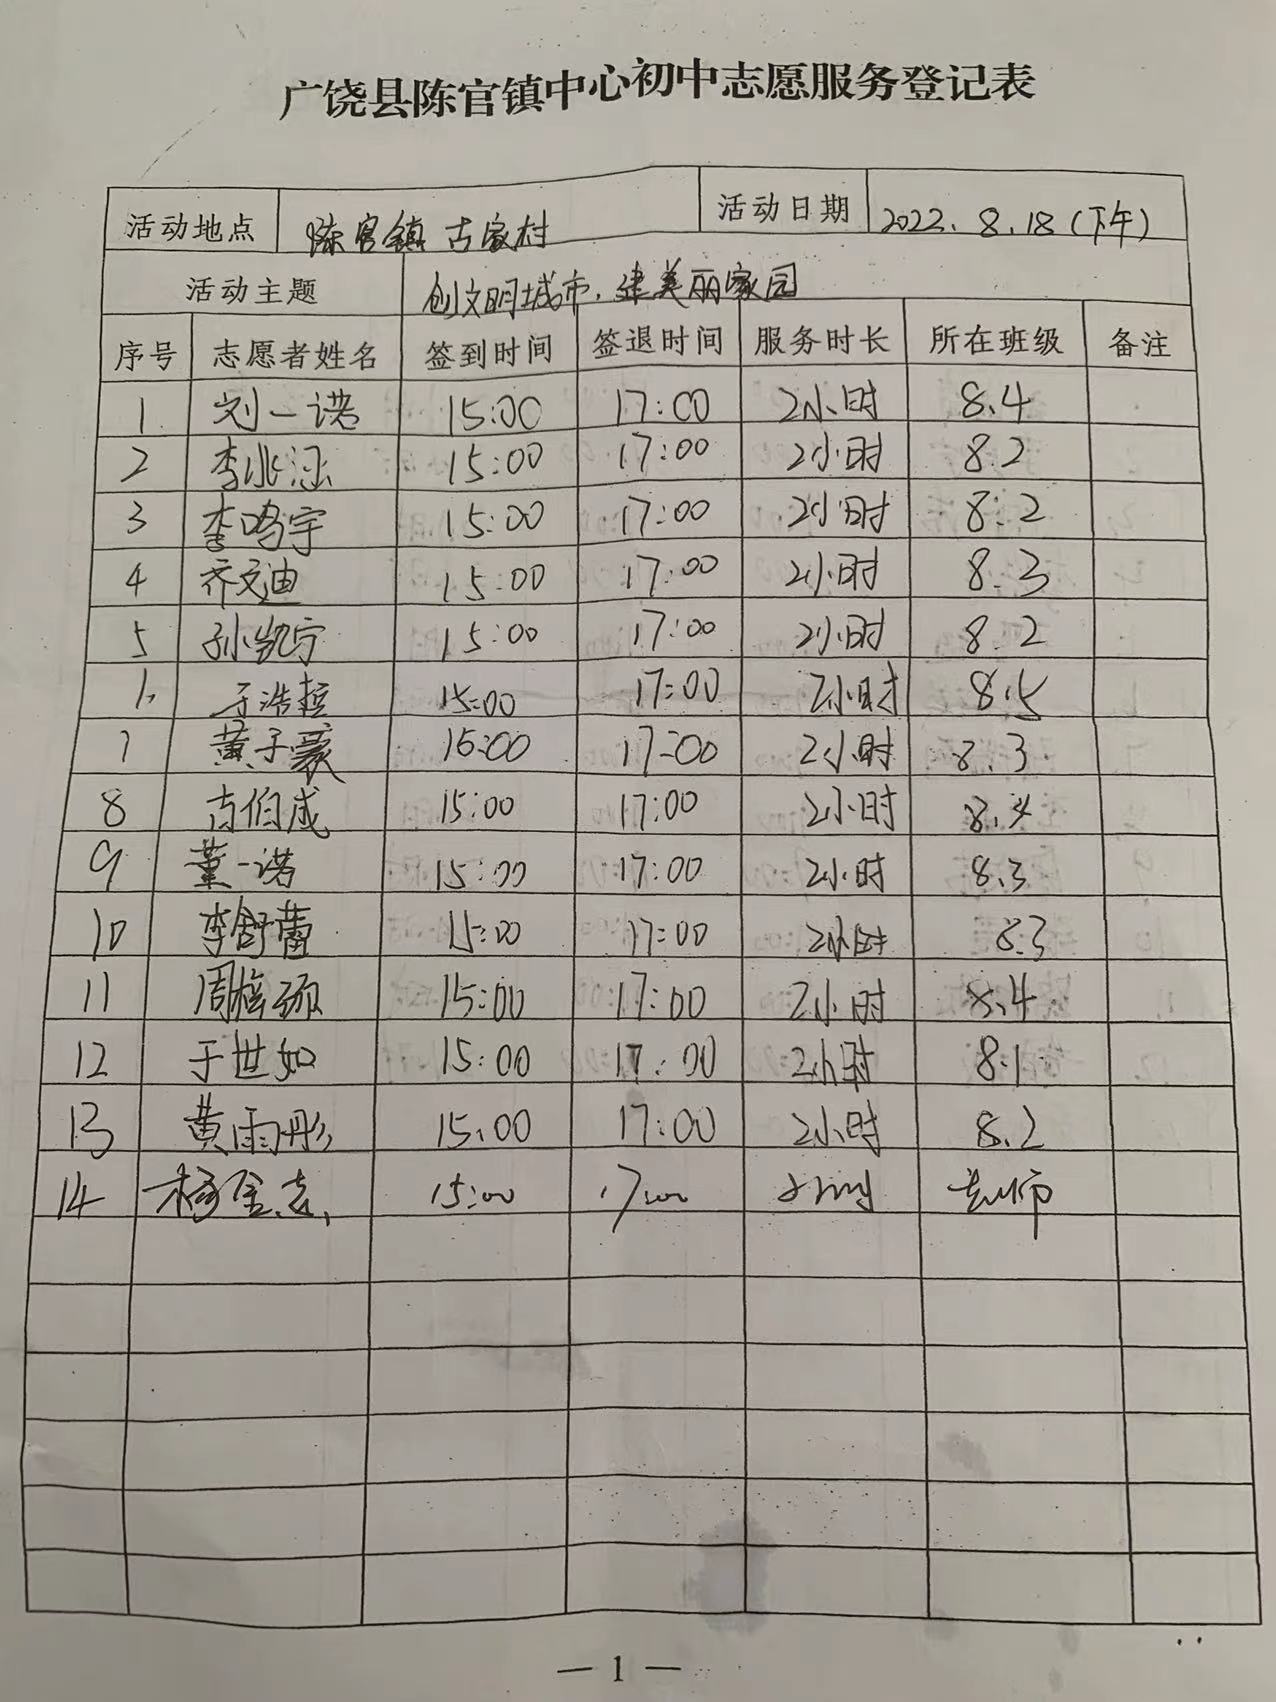 广饶县陈官镇中心初中志愿服务登记表
活动地点 陈官镇 古家村 活动日期 2022.8.18(下午)
活动主题 创文明城市,建美丽家园
序号 志愿者姓名 签到时间 签退时间 服务时长 所在班级 备注
1 刘一诺 15:00 17:00 2小时 8.4
2 李兆涵 15:00 17:00 2小时 8.2
3 李鸣宇 15:00 17:00 2小时 8.2
4 齐文迪 15:00 17:00 2小时 8.3
5 孙凯宁 15:00 17:00 2小时 8.2
于浩 15:00 17:00 2小时 8.5
7 黄子 15:00 17:00 2小时 8.3
8 古伯成 15:00 17:00 2小时 8.4
9 董一诺 15:00 17:00 2小时 8.3
10 李舒蕾 15:00 17:00 2小时 8.3
11 周 15:00 17:00 2小时 8.4
12 于世如 15:00 17:00 2小时 8.1
13 黄雨彤 15:00 17:00 2小时 8.2
14 杨金志 15:00 17:00 老师
— 1 —